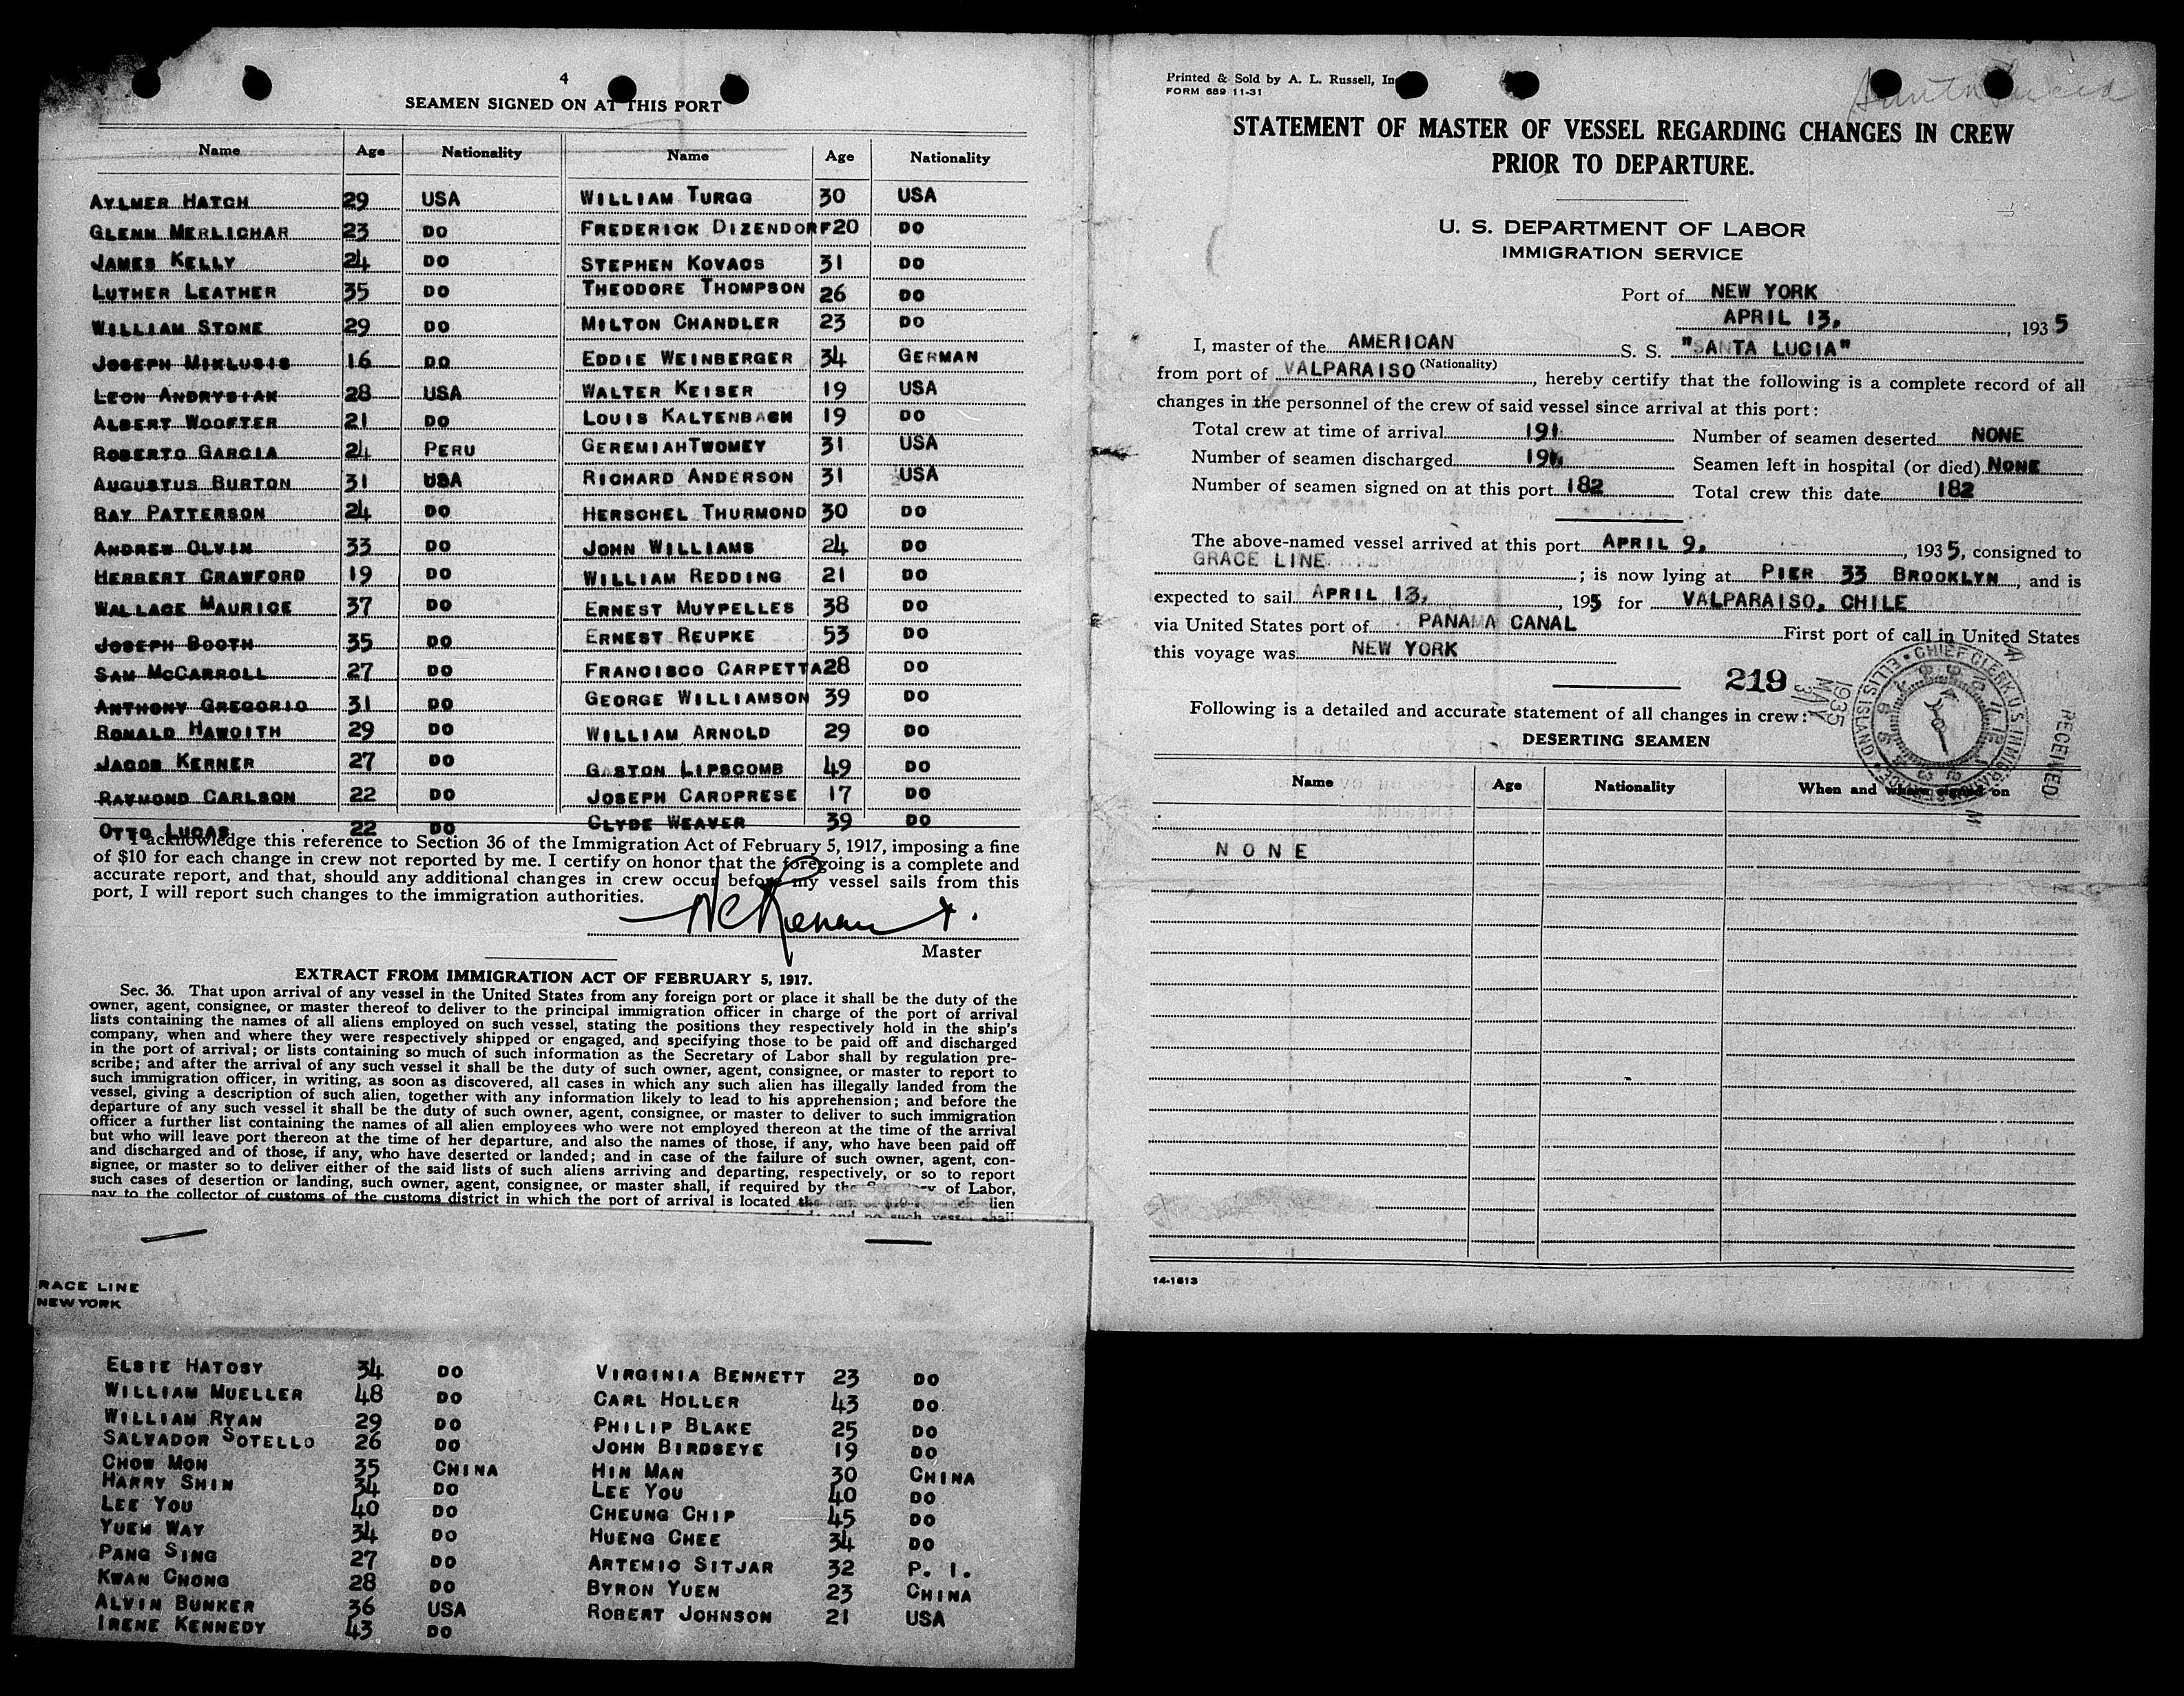 4
SEAMEN SIGNED ON AT THIS PORT
Name Age Nationality Name Age Nationality
AYLMER HATCH 29 USA WILLIAM TURGG 30 USA
GLENN MERLICHAR 23 DO FREDERICK DIZENDORF 20 DO
JAMES KELLY 24 DO STEPHEN KOVACS 31 DO
LUTHER LEATHER 35 DO THEODORE THOMPSON 26 DO
WILLIAM STONE 29 DO MILTON CHANDLER 23 DO
JOSEPH MIKLUSIS 16 DO EDDIE WEINBERGER 34 GERMAN
LEON ANDRYSIAK 28 USA WALTER KEISER 19 USA
ALBERT WOOFTER 21 DO LOUIS KALTENBACH 19 DO
ROBERTO GARCIA 24 PERU GEREMIAHTWOMEY 31 USA
AUGUSTUS BURTON 31 USA RICHARD ANDERSON 31 USA
RAY PATTERSON 24 DO HERSCHEL THURMOND 30 DO
ANDREW OLVIN 33 DO JOHN WILLIAMS 24 DO
HERBERT CRAWFORD 19 DO WILLIAM REDDING 21 DO
WALLACE MAURICE 37 DO ERNEST MUYPELLES 38 DO
JOSEPH BOOTH 35 DO ERNEST REUPKE 53 DO
SAM MCCARROLL 27 DO FRANCISCO CARPETTA 28 DO
ANTHONY GREGORIO 31 DO GEORGE WILLIAMSON 39 DO
RONALD HAWOITH 29 DO WILLIAM ARNOLD 29 DO
JACOB KERNER 27 DO GASTON LIPSCOMB 49 DO
RAYMOND CARLSON 22 DO JOSEPH CAROPRESE 17 DO
OTTO LUCAS 22 DO CLYDE WEAVER 39 DO
I acknowledge this reference to Section 36 of the Immigration Act of February 5, 1917, imposing a fine
of $10 for each change in crew not reported by me. I certify on honor that the foregoing is a complete and
accurate report, and that, should any additional changes in crew occur before my vessel sails from this
port, I will report such changes to the immigration authorities.
Master
EXTRACT FROM IMMIGRATION ACT OF FEBRUARY 5, 1917.
Sec. 36. That upon arrival of any vessel in the United States from any foreign port or place it shall be the duty of the
owner, agent, consignee, or master thereof to deliver to the principal immigration officer in charge of the port of arrival
lists containing the names of all aliens employed on such vessel, stating the positions they respectively hold in the ship's
company, when and where they were respectively shipped or engaged, and specifying those to be paid off and discharged
in the port of arrival; or lists containing so much of such information as the Secretary of Labor shall by regulation pre-
scribe; and after the arrival of any such vessel it shall be the duty of such owner, agent, consignee, or master to report to
such immigration officer, in writing, as soon as discovered, all cases in which any such alien has illegally landed from the
vessel, giving a description of such alien, together with any information likely to lead to his apprehension; and before the
departure of any such vessel it shall be the duty of such owner, agent, consignee, or master to deliver to such immigration
officer a further list containing the names of all alien employees who were not employed thereon at the time of the arrival
but who will leave port thereon at the time of her departure, and also the names of those, if any, who have been paid off
and discharged and of those, if any, who have deserted or landed; and in case of the failure of such owner, agent, con-
signee, or master so to deliver either of the said lists of such aliens arriving and departing, respectively, or so to report
such cases of desertion or landing, such owner, agent, consignee, or master shall, if required by the of Labor,
pay to the collector of customs of the customs district in which the port of arrival is located the sum of $10 lien
and no such vessel shall
RACE LINE
NEW YORK
ELSIE HATOSY 34 DO VIRGINIA BENNETT 23 DO
WILLIAM MUELLER 48 DO CARL HOLLER 43 DO
WILLIAM RYAN 29 DO PHILIP BLAKE 25 DO
SALVADOR SOTELLO 26 DO JOHN BIRDSEYE 19 DO
CHOW MON 35 CHINA HIN MAN 30 CHINA
HARRY SHIN 34 DO LEE YOU 40 DO
LEE YOU 40 DO CHEUNG CHIP 45 DO
YUEN WAY 34 DO HUENG CHEE 34 DO
PANG SING 27 DO ARTEMIO SITJAR 32 P. I.
KWAN CHONG 28 DO BYRON YUEN 23 CHINA
ALVIN BUNKER 36 USA ROBERT JOHNSON 21 USA
IRENE KENNEDY 43 DO
Printed & Sold by A. L. Russell, In
FORM 689 11-31
Santa Lucia
STATEMENT OF MASTER OF VESSEL REGARDING CHANGES IN CREW
PRIOR TO DEPARTURE.
U. S. DEPARTMENT OF LABOR
IMMIGRATION SERVICE
Port of NEW YORK
APRIL 13, , 1935
I, master of the AMERICAN S. S. "SANTA LUCIA"
(Nationality)
from port of VALPARAISO , hereby certify that the following is a complete record of all
changes in the personnel of the crew of said vessel since arrival at this port:
Total crew at time of arrival 191 Number of seamen deserted NONE
Number of seamen discharged 191 Seamen left in hospital (or died) NONE
Number of seamen signed on at this port 182 Total crew this date 182
The above-named vessel arrived at this port APRIL 9, , 1935, consigned to
GRACE LINE ; is now lying at PIER 33 BROOKLYN , and is
expected to sail APRIL 13, , 195 for VALPARAISO, CHILE
via United States port of PANAMA CANAL First port of call in United States
this voyage was NEW YORK
219
1935 MAY
CHIEF CLERK U.S. IMMIGRATION SERVICE • ELLIS ISLAND
RECEIVED
Following is a detailed and accurate statement of all changes in crew:
DESERTING SEAMEN
Name Age Nationality When and where signed on
NONE
14-1613